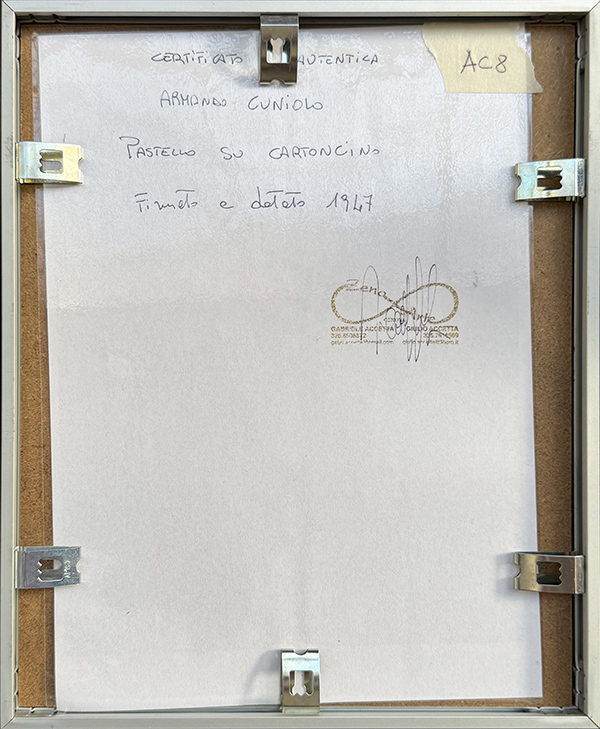 CERTIFICATO AUTENTICA
AC8
ARMANDO CUNIOLO
PASTELLO SU CARTONCINO
Firmato e datato 1947
Zena Arte
GABRIELE ACCETTA GIULIO ACCETTA